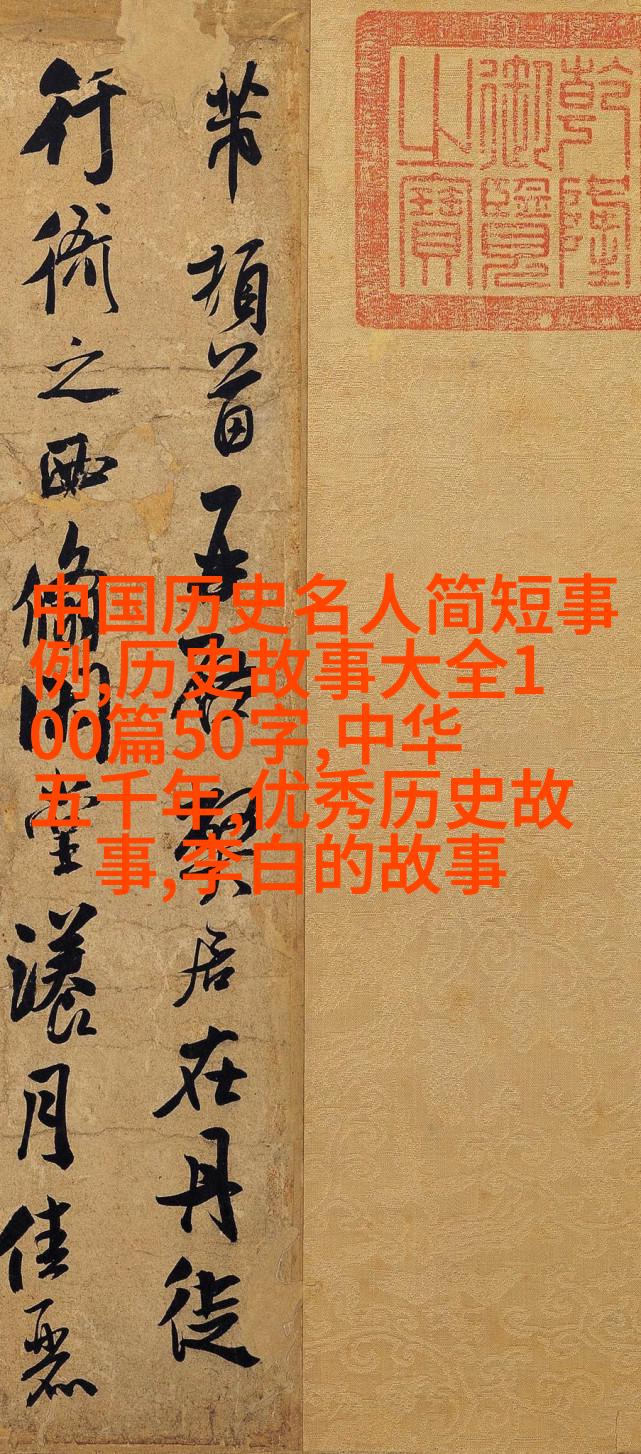 乾隆
御覽
之寶
芾頓首再啟弊居在丹徒
行衙之西翛閑堂漾月佳麗
中国历史名人简短事
例,历史故事大全1
00篇50字,中华
五千年,优秀历史故
事,李白的故事